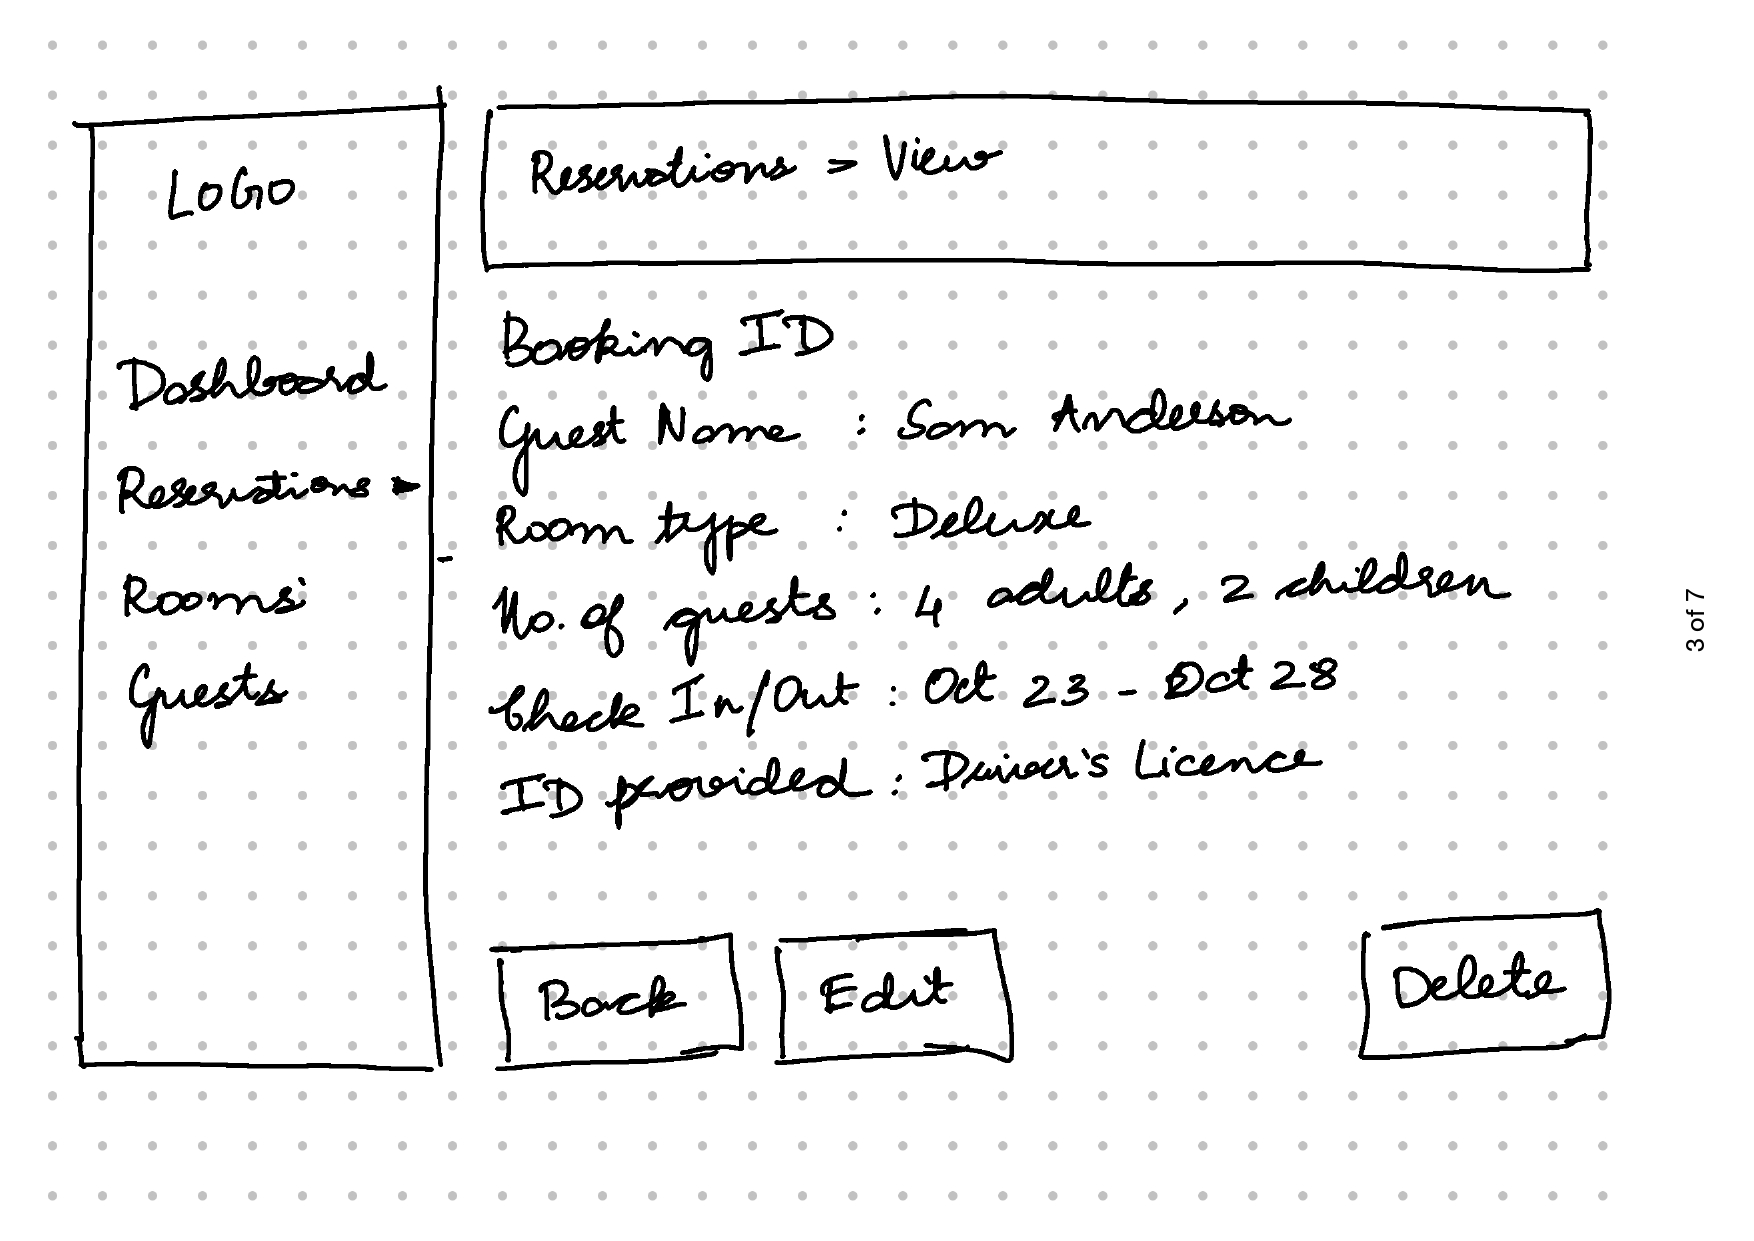 LOGO
Dashboard
Reservations ►
Rooms
Guests
Reservations > View
Booking ID
Guest Name : Sam Anderson
Room type : Deluxe
No. of guests : 4 adults, 2 children
Check In/Out : Oct 23 - Oct 28
ID provided : Driver's Licence
Back
Edit
Delete
3 of 7